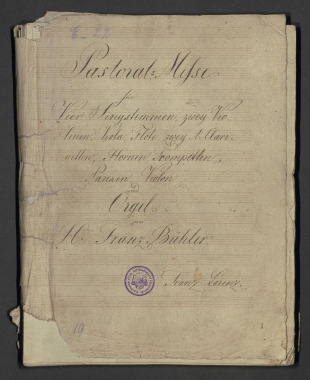 Pastoral-Messe
für
Vier Singstimmen, zwey Vio-
linen, Viola Flöte zwey A Clari-
netten, Hornen Trompetten,
Pauken, Violon
und
Orgel
von
H: Franz Bühler
Franz Lorenz